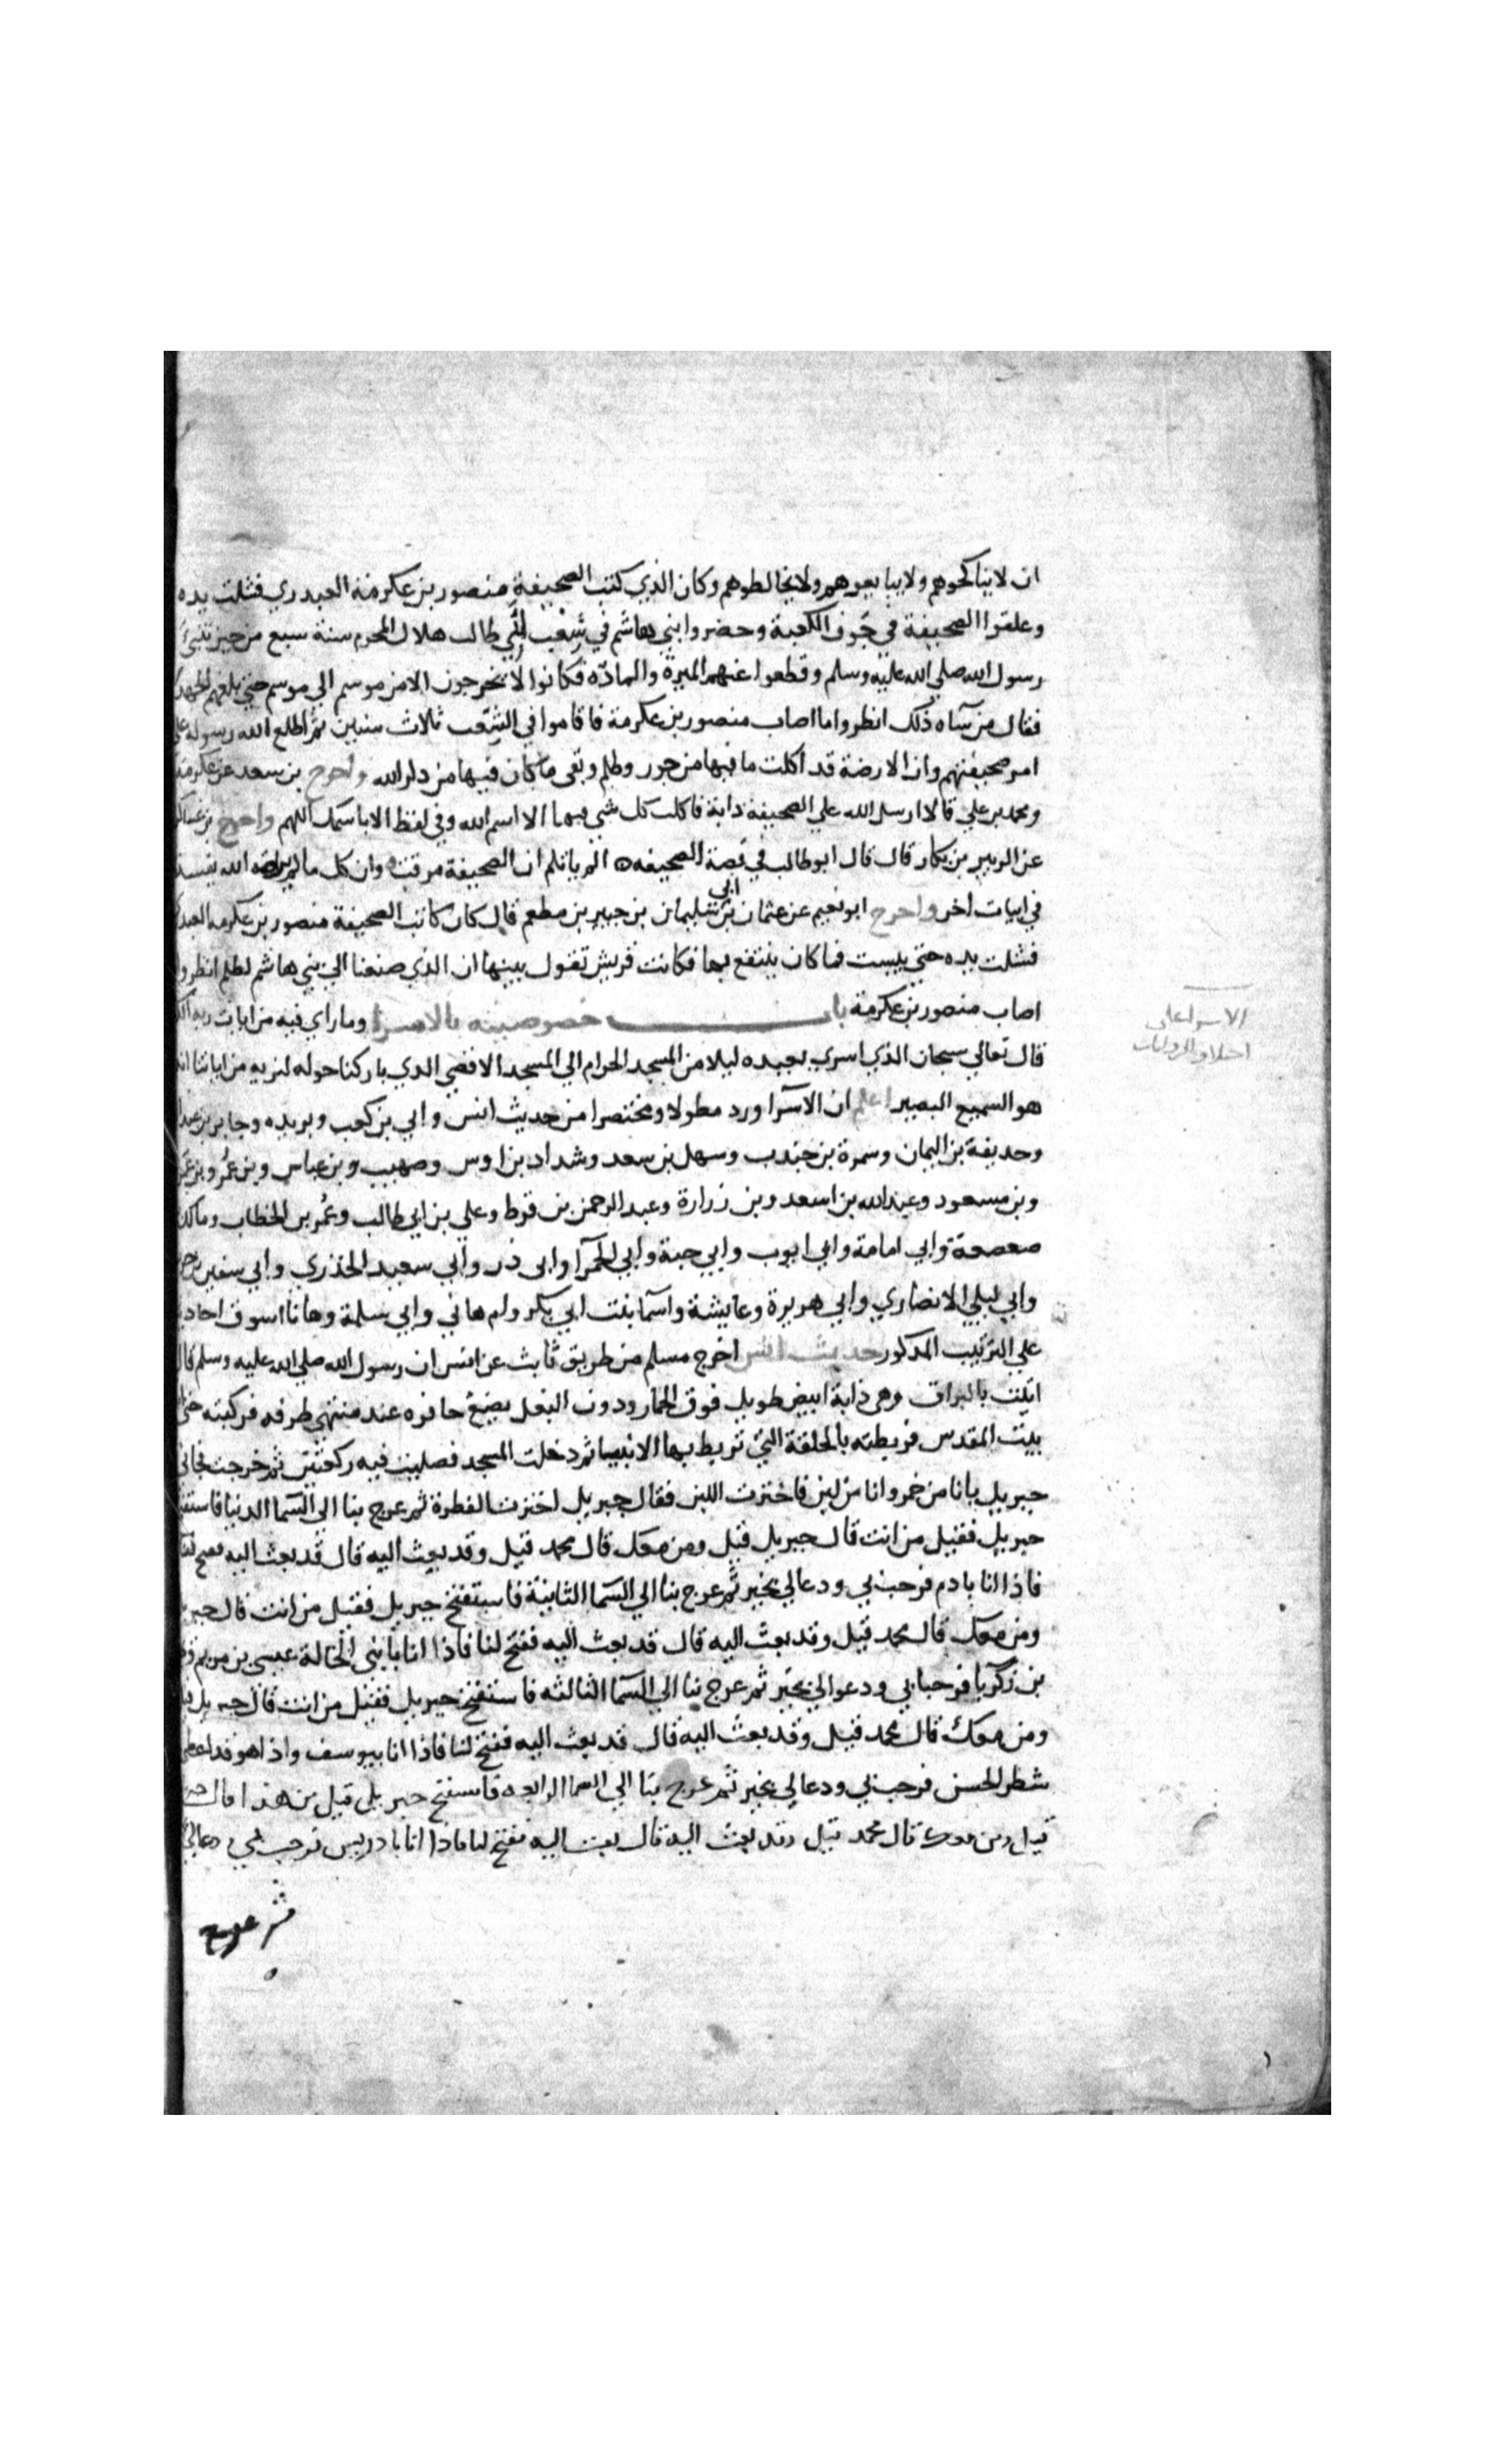 ان لا يناكحوهم ولا يبايعوهم ولا يخالطوهم وكان الذي كتب الصحيفة منصور بن عكرمة العبدري فشلت يده
وعلقوا الصحيفة في جوف الكعبة وحضروا بني هاشم في شعب ابي طالب هلال المحرم سنة سبع من حين تنبئ
رسول الله صلي الله عليه وسلم وقطعوا عنهم الميرة والمادة فكانوا لا يخرجون الا من موسم الي موسم حتي بلغهم الجهد
فقال من سآه ذلك انظروا ما اصاب منصور بن عكرمة فاقاموا في الشعب ثلاث سنين ثم اطلع الله رسوله علي
امر صحيفتهم وان الارضة قد اكلت ما فيها من جور وظلم وبقي ما كان فيها من ذكر الله واخرج بن سعد عن عكرمة
ومحمد بن علي قالا ارسل الله علي الصحيفة دابة فاكلت كل شي فيها الا اسم الله وفي لفظ الا باسمك اللهم واخرج بن عساكر
عن الزبير بن بكار قال قال ابو طالب في قصة الصحيفه الم ياتكم ان الصحيفة مزقت وان كل ما لم يرضه الله يفسد
في ابيات اخر واخرج ابو نعيم عن عثمان بن ابي سليمان بن جبير بن مطعم قال كان كاتب الصحيفة منصور بن عكرمه العبد
فشلت يده حتي يبست فما كان ينتفع بها فكانت قريش تقول بينها ان الذي صنعنا الي بني هاشم لظلم انظروا
اصاب منصور بن عكرمة باب خصوصيته بالاسرا وما راي فيه من ايات ربه
قال تعالي سبحان الذي اسري بعبده ليلا من المسجد الحرام الي المسجد الاقصي الذي باركنا حوله لنريه من اياتنا انه
هو السميع البصير اعلم ان الاسرآ ورد مطولا ومختصرا من حديث انس وابي بن كعب وبريده وجابر بن عبد
وحذيفة بن اليمان وسمرة بن جندب وسهل بن سعد وشداد بن اوس وصهيب وبن عباس وبن عمر وبن
وبن مسعود وعبد الله بن اسعد وبن زرارة وعبد الرحمن بن قرط وعلي بن ابي طالب وعمر بن الخطاب ومالك
صعصعة وابي امامة وابي ايوب وابي حبة وابي الحمرآ وابي ذر وابي سعيد الخذري وابي سفين
وابي ليلي الانصاري وابي هريرة وعايشة واسمآ بنت ابي بكر وام هاني وابي سلمة وها انا اسوق احاد
علي الترتيب المذكور حديث انس اخرج مسلم من طريق ثابث عن انس ان رسول الله صلي الله عليه وسلم قال
اتيت بالبراق وهي دابة ابيض طويل فوق الحمار ودون البغل يضع حافره عند منتهي طرفه فركبته حتي
بيت المقدس فربطته بالحلقة التي تربط بها الانبيا ثم دخلت المسجد فصليت فيه ركعتين ثم خرجت فجاني
جبريل بانا من خمر وانا من لبن فاخترت اللبن فقال جبريل اخترت الفطرة ثم عرج بنا الي السما الدنيا فاستفتح
جبريل فقيل من انت قال جبريل قيل ومن معك قال محمد قيل وقد بعث اليه قال قد بعث اليه ففتح لنا
فاذا انا بادم فرحب بي ودعا لي بخير ثم عرج بنا الي السما الثانية فاستفتح جبريل فقيل من انت قال جبر
ومن معك قال محمد قيل وقد بعث اليه قال قد بعث اليه ففتح لنا فاذا انا بابني الخالة عيسي بن مريم
بن زكريا فرحبا بي ودعوا لي بخير ثم عرج بنا الي السما الثالثه فاستفتح جبريل فقيل من انت قال جبريل
ومن معك قال محمد قيل وقد بعث اليه قال قد بعث اليه ففتح لنا فاذا انا بيوسف واذا هو قد اعطي
شطر الحسن فرحب بي ودعا لي بخير ثم عرج بنا الي السما الرابعه فاستفتح جبريل قيل من هذا قال
قيل ومن معك قال محمد قيل وقد بعث اليه قال بعث اليه ففتح لنا فاذا انا بادريس فرحب بي ودعا لي
ثم عرج
الاسرا علي
اختلاف الروايات